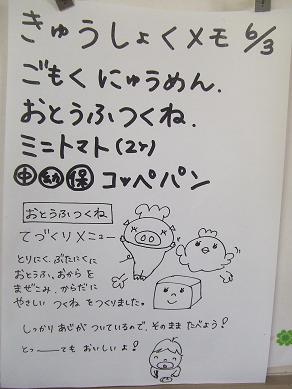 きゅうしょくメモ 6/3
ごもくにゅうめん.
おとうふつくね.
ミニトマト(2ケ)
中幼保 コッペパン
おとうふつくね
てづくりメニュー
とりにく、ぶたにくに
おとうふ、おからを
まぜこみ、からだに
やさしい つくねをつくりました。
しっかり あじが ついているので、そのまま たべよう!
とっーーても おいしいよ!